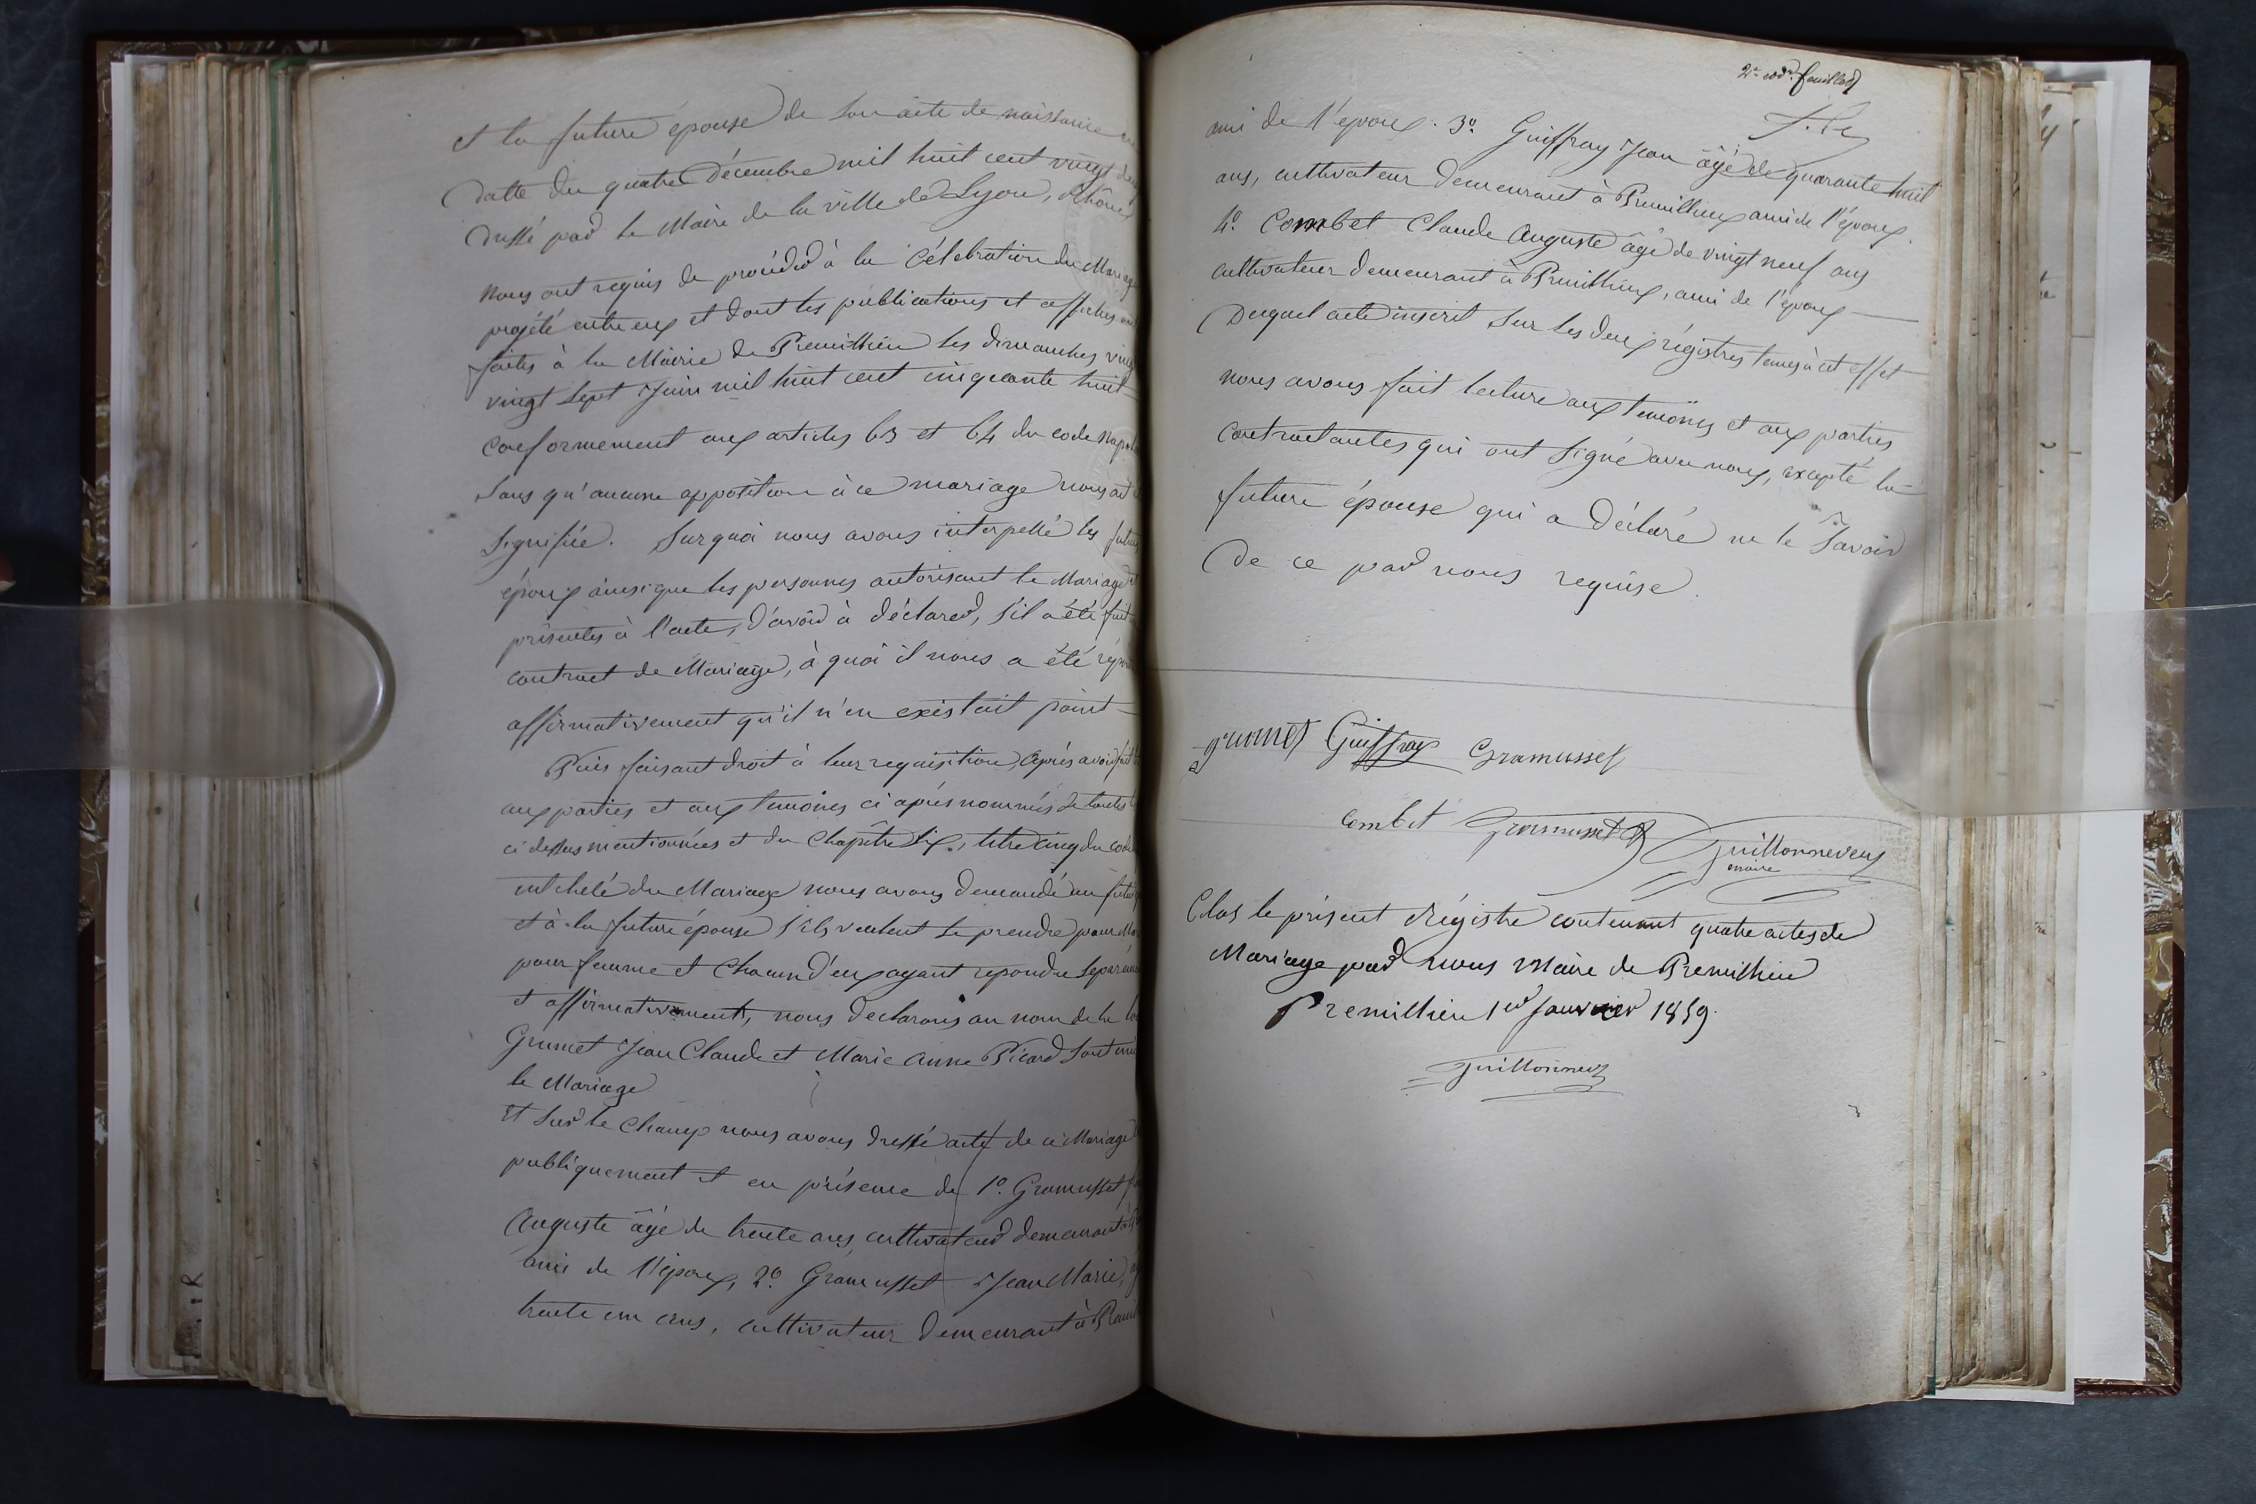 et la future épouse de son acte de naissance en
datte du quatre Décembre mil huit cent vingt
dressé par le Maire de la ville de Lyon, Rhône
nous ont requis de procéder à la Célébration du Mariage
projété entre eux et dont les publications et affiches ont
faites à la Mairie de Premillieu les dimanches vingt
vingt sept Juin mil huit cent cinquante huit
conformement aux articles 63 et 64 du code Napol
sans qu'aucune opposition à ce mariage nous ait
signifiée. Surquoi nous avons interpellé les futurs
époux ainsi que les personnes autorisant le Mariage
présentes à l'acte, d'avoir à déclarer, s'il a été fait
contract de Mariage, à quoi il nous a été répon
affirmativement qu'il n'en existait point
Puis faisant droit à leur requisition, après avoir fait
aux parties et aux temoins ci après nommés de toutes
ci dessus mentionnées et du chapitre six, titre cinq du code
intitulé du Mariage nous avons demandé au futur
et à la future épouse s'ils veulent se prendre pour Mari
pour femme et chacun d'eux ayant repondu séparém
et affirmativement, nous declarons au nom de la loi
Grumet Jean Claude et Marie Anne Picard sont unis
le Mariage
Et sur le champ nous avons dressé acte de ce Mariage
publiquement et en présence de 1º. Gramusset
Auguste âgé de trente ans, cultivateur demeurant à
ami de l'époux, 2º. Gramusset Jean Marie,
trente un ans, cultivateur demeurant à Prem
2e. et der. feuillet
ami de l'époux. 3º. Guiffray Jean âgé de quarante huit
ans, cultivateur demeurant à Premillieu ami de l'époux.
4º. Combet Claude Auguste âgé de vingt neuf ans
cultivateur demeurant à Premillieu, ami de l'époux
Duquel acte inscrit sur les deux régistres tenus à cet effet
nous avons fait lecture aux temoins et aux parties
contractantes qui ont signé avec nous, excepté la
future épouse qui a déclaré ne le savoir
de ce par nous requise.
grumet Guiffray Gramusset
Combet Gramusset Guillonneveux
maire
Clos le présent Régistre contenant quatre actes de
Mariage par nous Maire de Premillieu
Premillieu 1er Janvier 1859.
Guillonneux